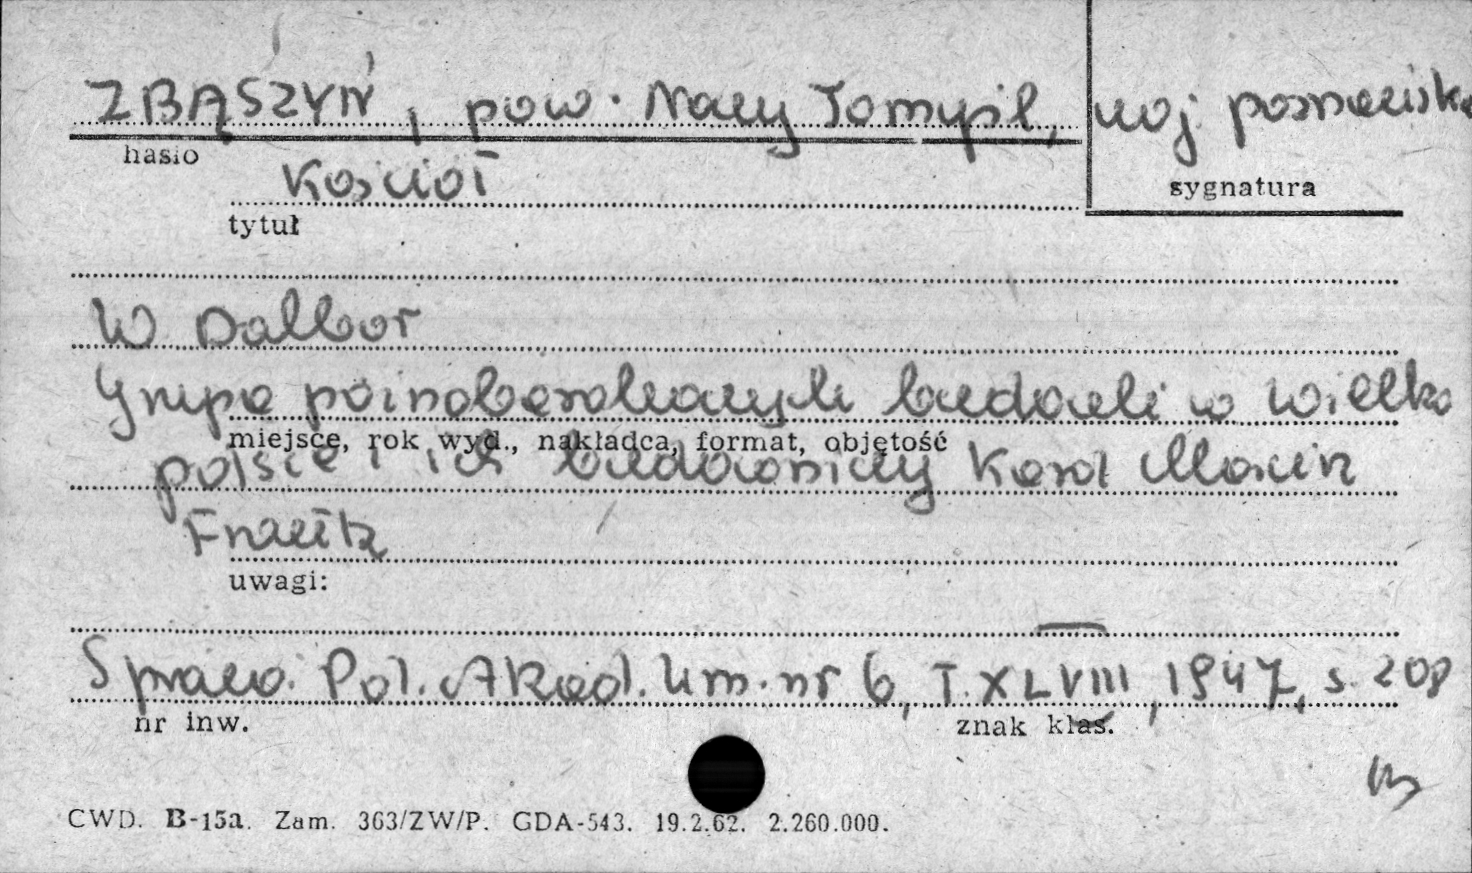 ZBĄSZYŃ, pow. Nowy Tomyśl, woj. poznańskie
hasło
sygnatura
Kościół
tytuł
W Dalbor
Grupa póznobarokowych budowli w Wielko
miejsce, rok wyd., nakładca, format, objętość
polsce i ich budowniczy Karol Marcin
Frantz
uwagi:
Spraw. Pol. Akad. Um. nr 6, T. XLVIII, 1947, s. 208
nr inw.
znak klas.
CWD. B-15a. Zam. 363/ZW/P. GDA-543. 19.2.62. 2.260.000.